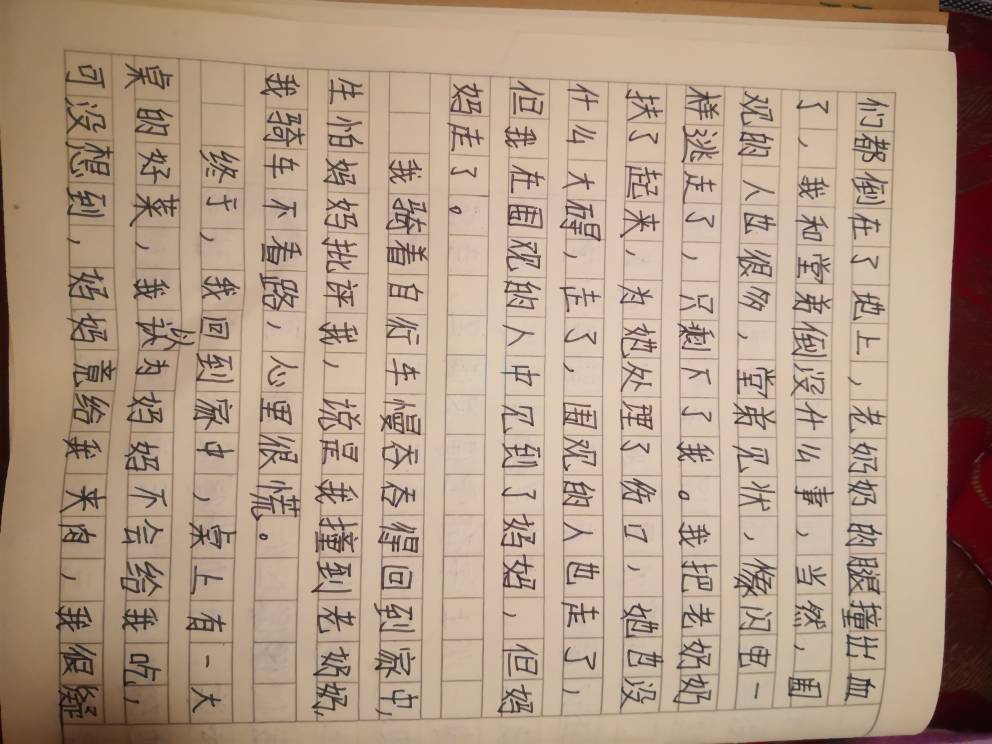 们都倒在了地上，老奶奶的腿撞出血
了，我和堂弟倒没什么事，当然，围
观的人也很多，堂弟见状，像闪电一
样逃走了，只剩下了我。我把老奶奶
扶了起来，为她处理了伤口，她也没
什么大碍，走了，围观的人也走了，
但我在围观的人中见到了妈妈，但妈
妈走了。
我骑着自行车慢吞吞得回到家中，
生怕妈妈批评我，说是我撞到老奶奶，
我骑车不看路，心里很慌。
终于，我回到家中，桌上有一大
桌的好菜，我认为妈妈不会给我吃，
可没想到，妈妈竟给我夹肉，我很疑